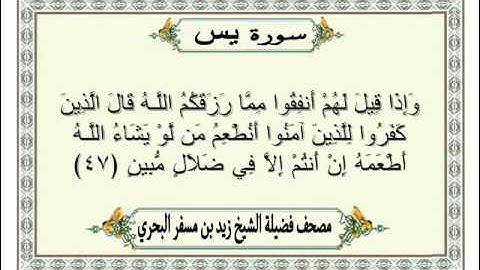 سورة يس
وَإِذَا قِيلَ لَهُمْ أَنفِقُوا مِمَّا رَزَقَكُمُ اللَّـهُ قَالَ الَّذِينَ
كَفَرُوا لِلَّذِينَ آمَنُوا أَنُطْعِمُ مَن لَّوْ يَشَاءُ اللَّـهُ
أَطْعَمَهُ إِنْ أَنتُمْ إِلَّا فِي ضَلَالٍ مُّبِينٍ (٤٧)
مصحف فضيلة الشيخ زيد بن مسفر البحري